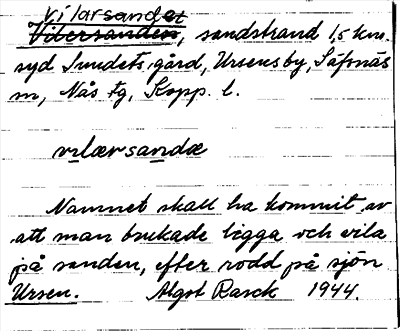 vilarsandet
Vilersanden, sandstrand 1,5 km.
syd Sundets gård, Ursens by, Säfsnäs
sn, Nås tg, Kopp. l.
vilærsandæ
Namnet skall ha kommit av
att man brukade ligga och vila
på sanden, efter rodd på sjön
Ursen. Algot Rasck 1944.